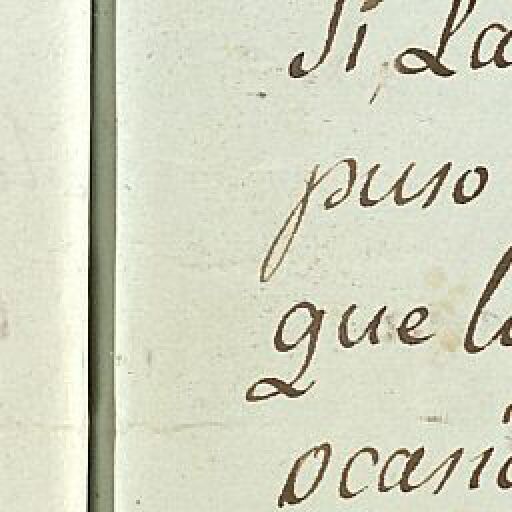 Si, La
puso
que l
ocasi